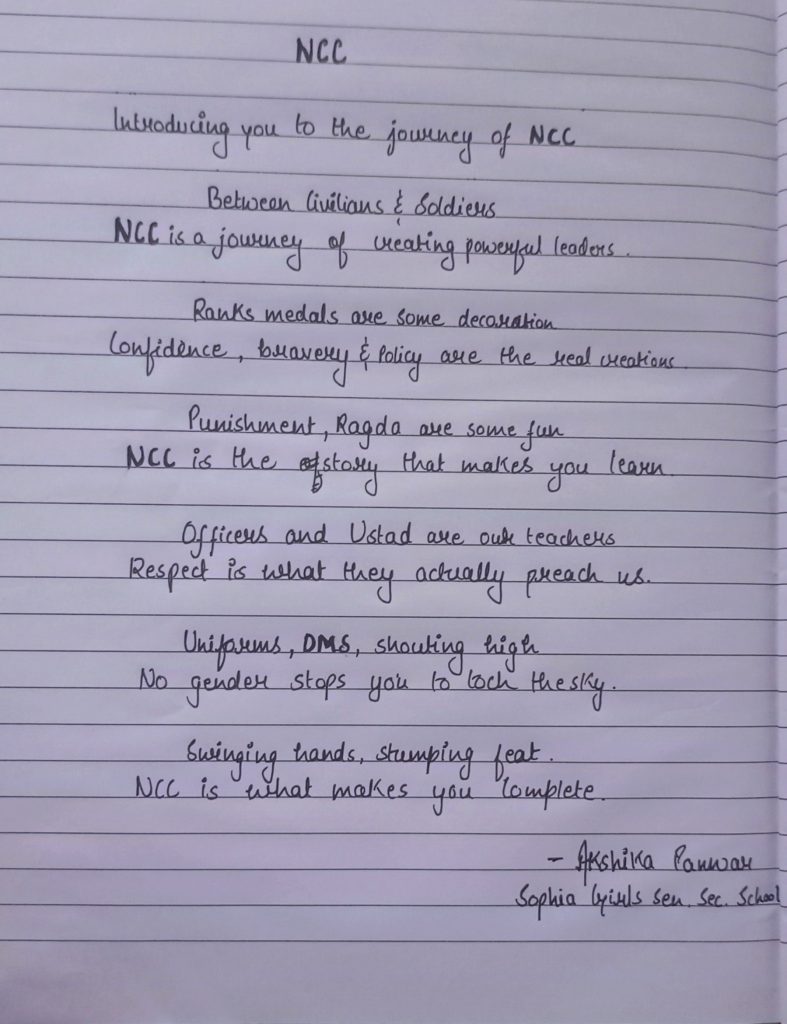 NCC
Introducing you to the journey of NCC
Between Civilians & Soldiers
NCC is a journey of creating powerful leaders.
Ranks medals are some decoration
Confidence, bravery & Policy are the real creations.
Punishment, Ragda are some fun
NCC is the story that makes you learn
Officers and Ustad are our teachers
Respect is what they actually preach us.
Uniforms, DMS, shouting high
No gender stops you to toch the sky.
Swinging hands, stumping feat.
NCC is what makes you Complete.
- Akshika Panwar
Sophia Girls Sen. Sec. School